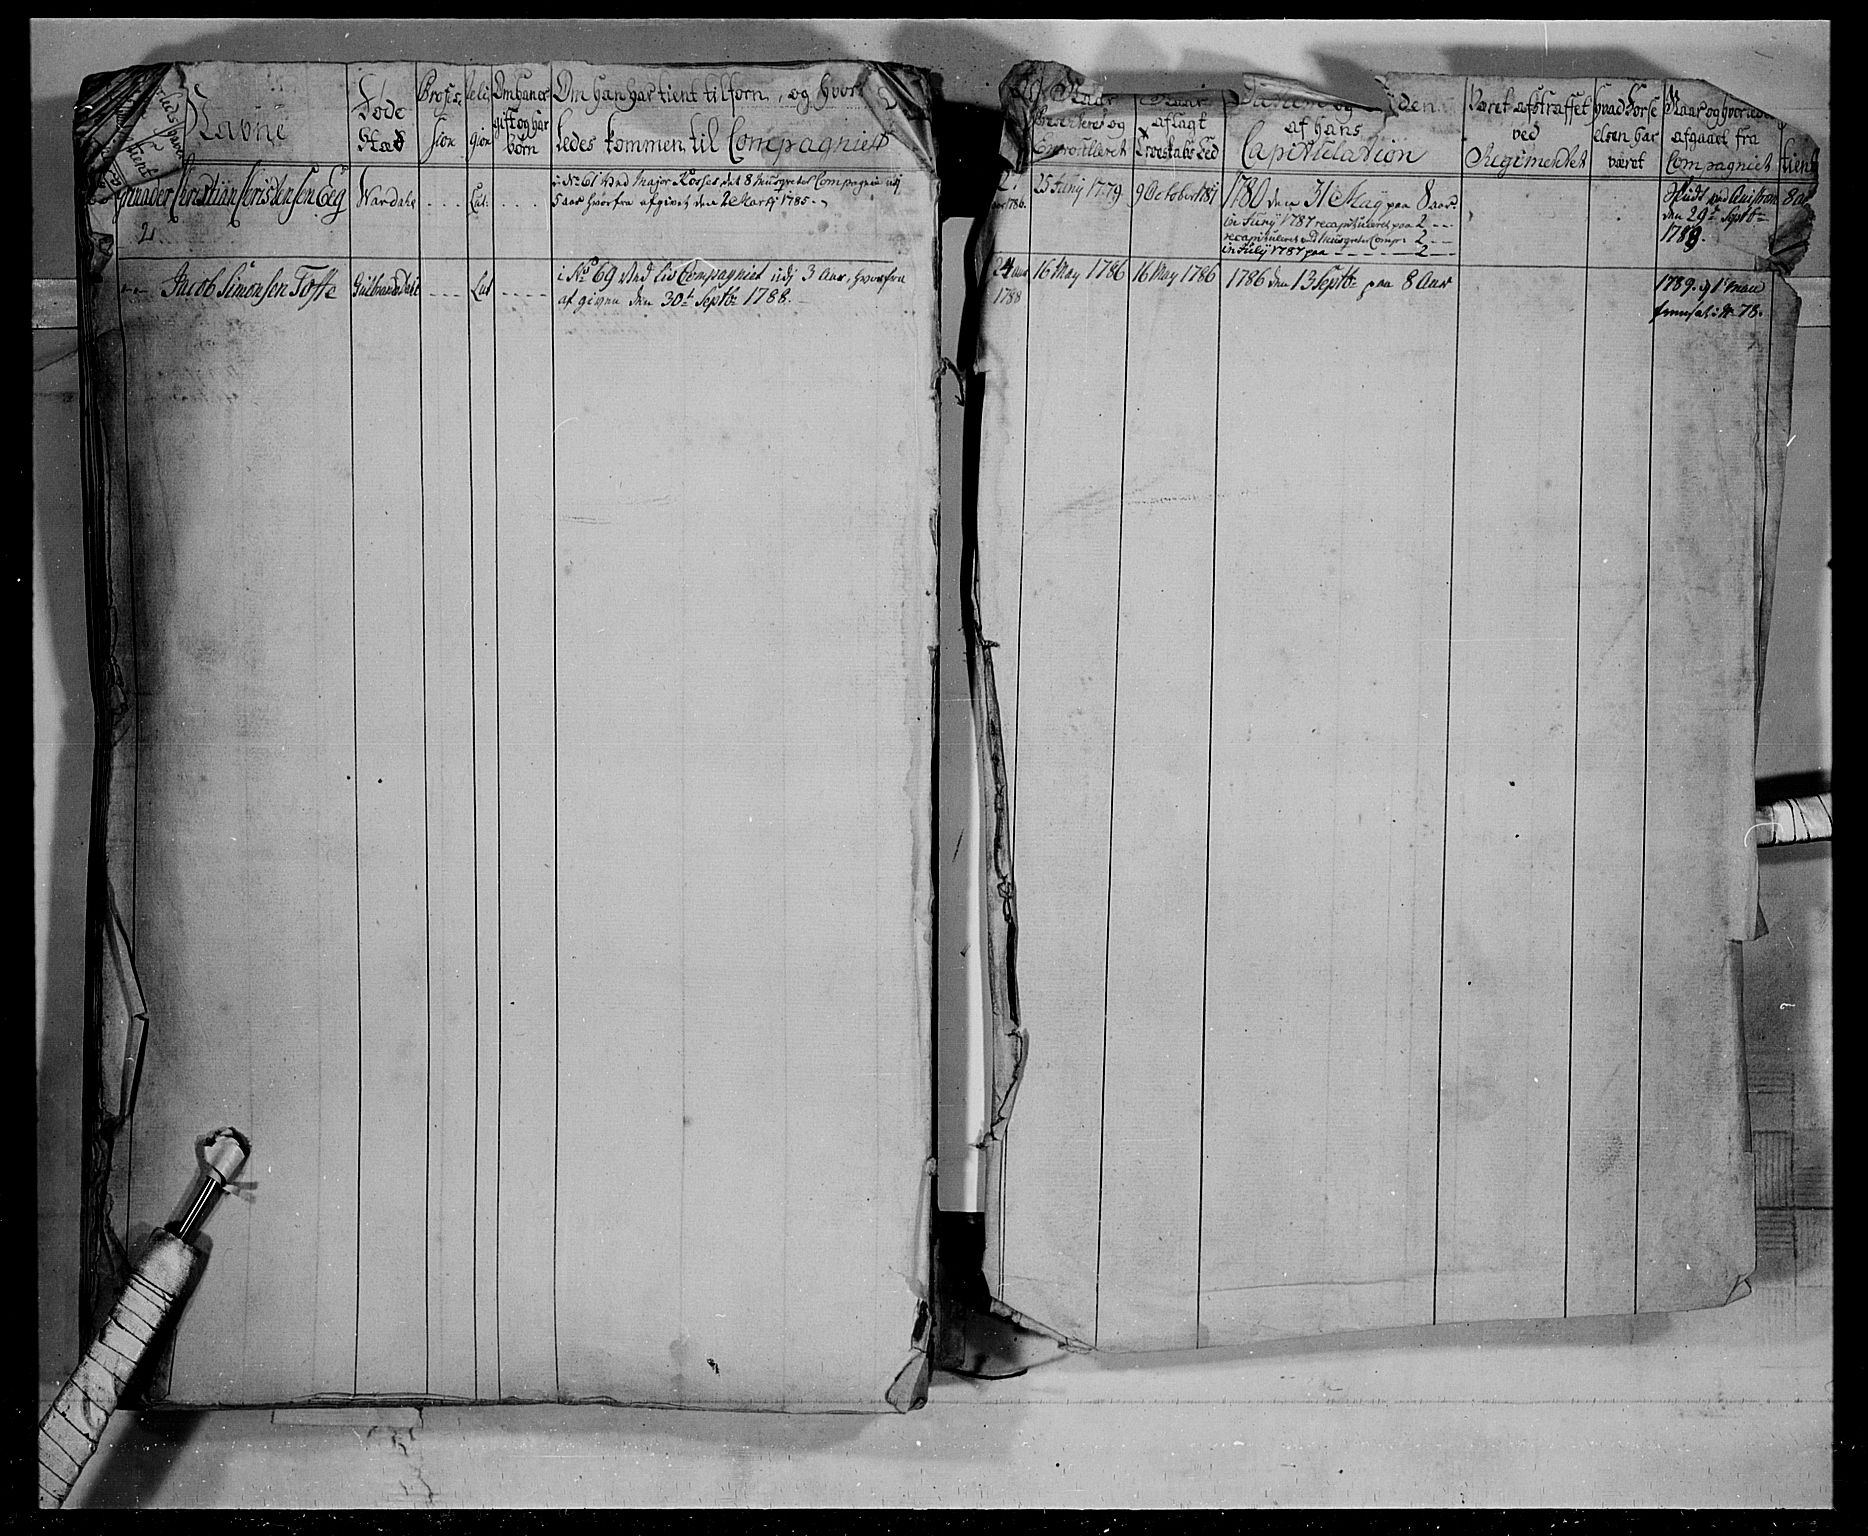 Navne
Føde
Stæd
Profes
sion
Reli
gion
Om han er
gift og har
børn
Om han har tient tilforn, og hvor
ledes kommen til Compagniet
Naar
og
Enroulleret
Naar
aflagt
Troeskabs Eed
Datum og Tiden
af hans
Capitulation
Været afstraffet
ved
Regimentet
hvad Forse
elsen har
været
Naar og hvorledes
afgaaet fra
Compagniet
tient
Grenader Christian Christensen Eeg
2
Wardahl
Lut:
i No 61 ved Major Kosses det 8 Musqueter Compagnie udj
5 aar hvorfra afgivet den 2 Martj 1785.
1786.
25 Junj 1779
9 October 1781
1780 den 31 May paa 8 aar
in Junij 1787 recapituleret paa 2
recapituleret ved Musqueter Comp: 2
in Julij 1787 paa 2
den 29de Septbr
1789.
8 a
Jacob Simonsen Tofte
Gulbrandsdal
Lut
i No 69 ved liv Compagniet udj 3 Aar, hvorfra
af given den 30te Septbr 1788.
24 aar
1788
16 May 1786
16 May 1786
1786 den 13 Septbr paa 8 Aar
1789.
No 78.